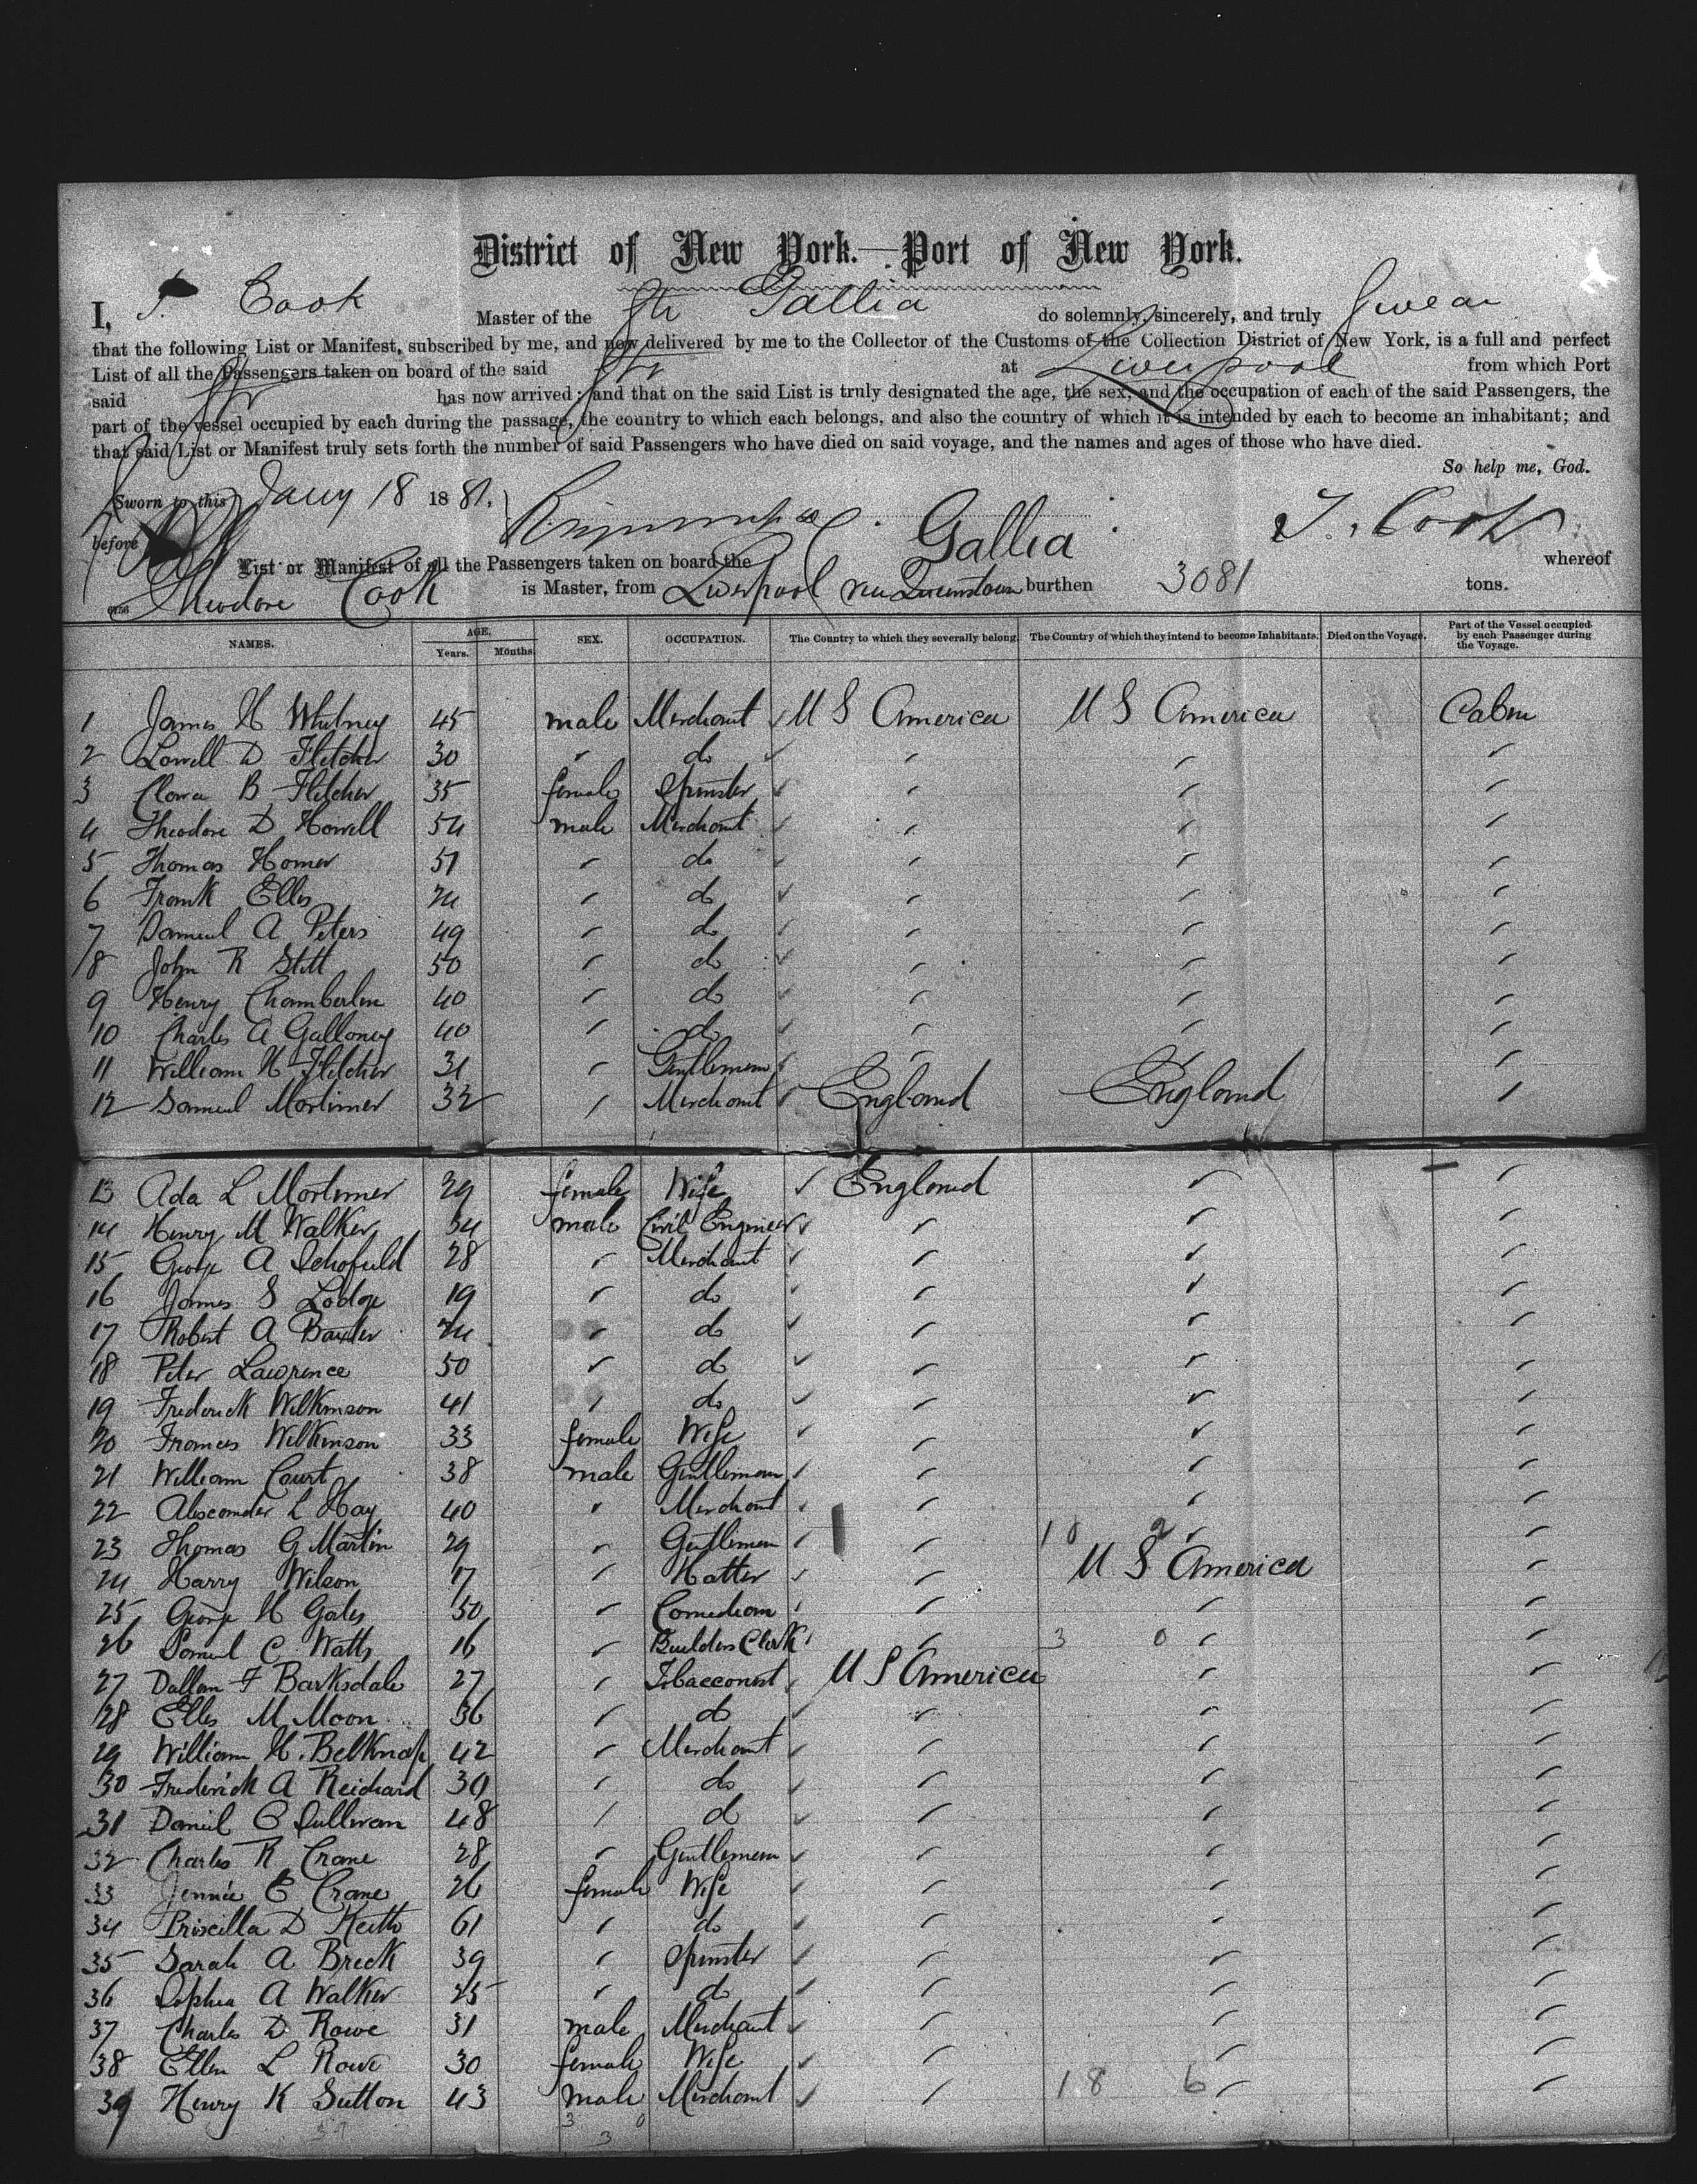 District of New York.—Port of New York.
I, T. Cook Master of the Str Gallia do solemnly, sincerely, and truly Swear
that the following List or Manifest, subscribed by me, and now delivered by me to the Collector of the Customs of the Collection District of New York, is a full and perfect
List of all the Passengers taken on board of the said Str at Liverpool from which Port
said Str has now arrived; and that on the said List is truly designated the age, the sex, and the occupation of each of the said Passengers, the
part of the vessel occupied by each during the passage, the country to which each belongs, and also the country of which it is intended by each to become an inhabitant; and
that said List or Manifest truly sets forth the number of said Passengers who have died on said voyage, and the names and ages of those who have died.
So help me, God.
Sworn to this Jany 18 1881. T. Cook
before
List or Manifest of all the Passengers taken on board the Gallia whereof
6756 Theodore Cook is Master, from Liverpool via Queenstown burthen 3081 tons.
NAMES. AGE. Years. Months. SEX. OCCUPATION. The Country to which they severally belong. The Country of which they intend to become Inhabitants. Died on the Voyage. Part of the Vessel occupied by each Passenger during the Voyage.
1 James H Whitney 45 male Merchant U S America U S America Cabin
2 Lowell D Fletcher 30 " do " " "
3 Clara B Fletcher 35 female Spinster " " "
4 Theodore D Howell 54 male Merchant " " "
5 Thomas Homer 51 " do " " "
6 Frank Elles 24 " do " " "
7 Samuel A Peters 49 " do " " "
8 John R Stitt 50 " do " " "
9 Henry Chamberlin 40 " do " " "
10 Charles A Galloney 40 " do " " "
11 William H Fletcher 31 " Gentleman " " "
12 Samuel Mortimer 32 " Merchant England England "
13 Ada L Mortimer 29 female Wife England " "
14 Henry M Walker 34 male Civil Engineer " " "
15 George A Schofield 28 " Merchant " " "
16 James S Lodge 19 " do " " "
17 Robert A Baxter 24 " do " " "
18 Peter Lawrence 50 " do " " "
19 Frederick Wilkinson 41 " do " " "
20 Frances Wilkinson 33 female Wife " " "
21 William Court 38 male Gentleman " " "
22 Alexander L Hay 40 " Merchant " " "
23 Thomas G Martin 29 " Gentleman " " "
24 Harry Wilson 17 " Hatter " U S America "
25 George H Gates 50 " Comedian " " "
26 Samuel C Watts 16 " Builders Clerk " " "
27 Dallam F Barksdale 27 " Tobacconist U S America " "
28 Elles M Moon 36 " do " " "
29 William H. Belknap 42 " Merchant " " "
30 Frederick A Reichard 30 " do " " "
31 Daniel C Sullivan 48 " do " " "
32 Charles R Crane 28 " Gentleman " " "
33 Jennie C Crane 26 female Wife " " "
34 Priscilla D Keith 61 " do " " "
35 Sarah A Breck 39 " Spinster " " "
36 Sophia A Walker 25 " do " " "
37 Charles D Rowe 31 male Merchant " " "
38 Ellen L Rowe 30 female Wife " " "
39 Henry K Sutton 43 male Merchant " 18 6 " "